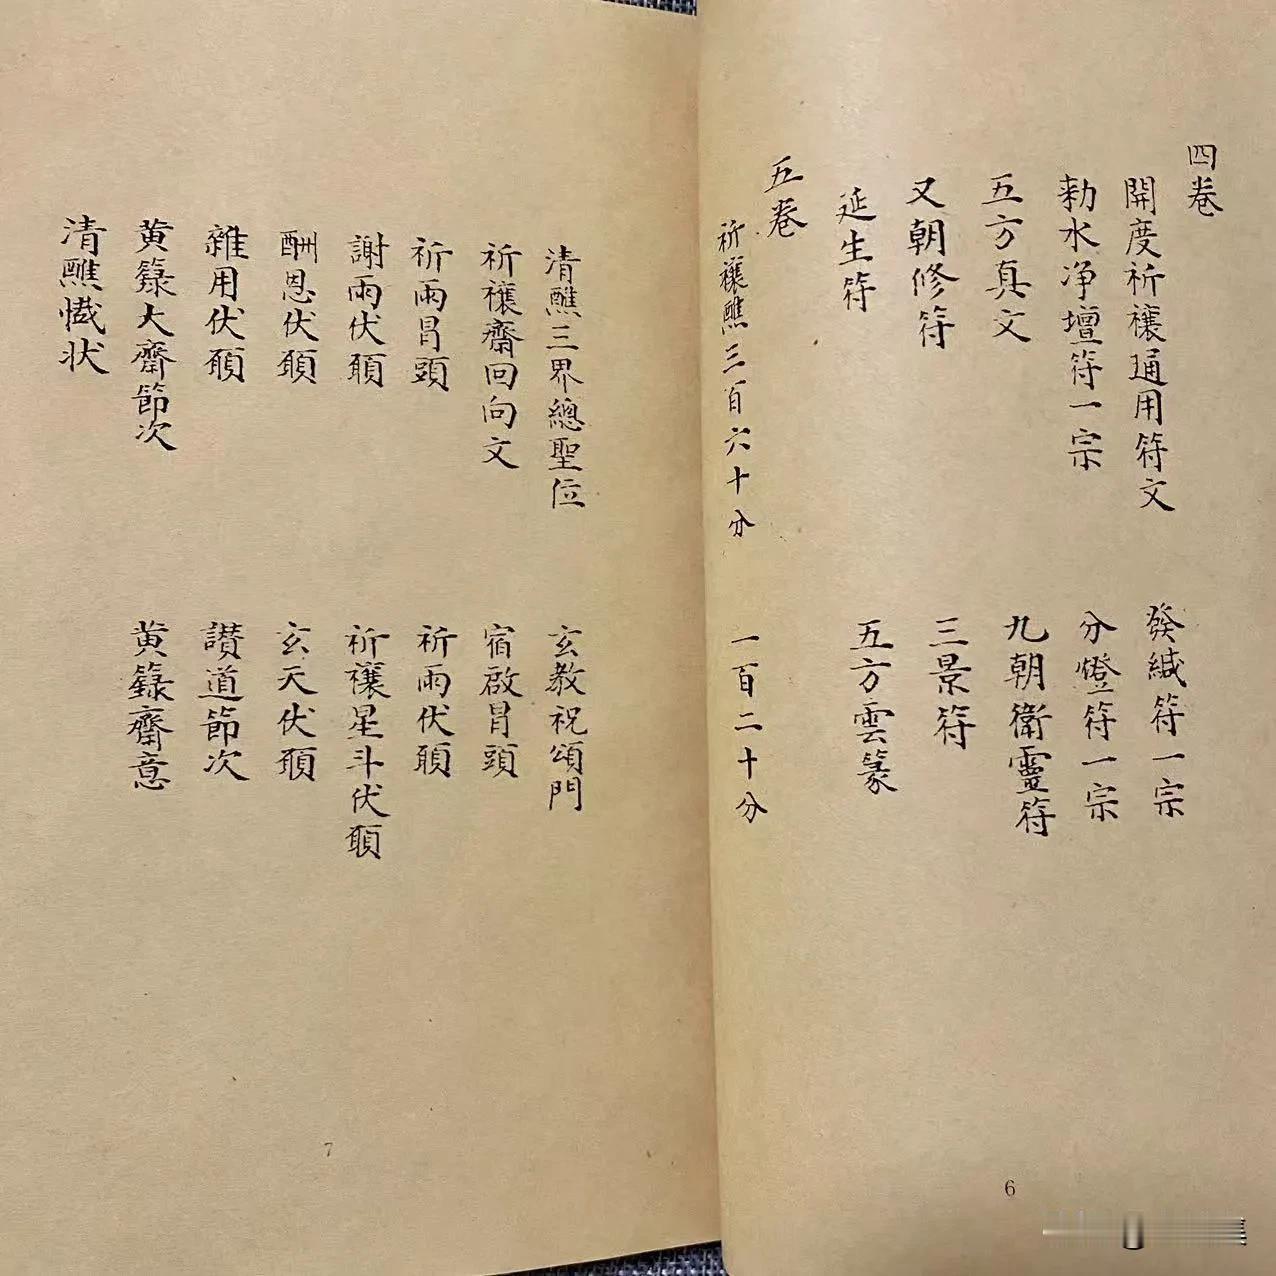 四卷
開度祈禳通用符文　發緘符一宗
勑水净壇符一宗　分燈符一宗
五方真文　九朝衛靈符
又朝修符　三景符
延生符　五方雲篆
五卷
祈禳醮三百六十分　一百二十分
6
清醮三界總聖位　玄教祝頌門
祈禳齋回向文　宿啟冒頭
祈雨冒頭　祈雨伏願
謝雨伏願　祈禳星斗伏願
酬恩伏願　玄天伏願
雜用伏願　讃道節次
黄籙大齋節次　黄籙齋意
清醮懴状
7